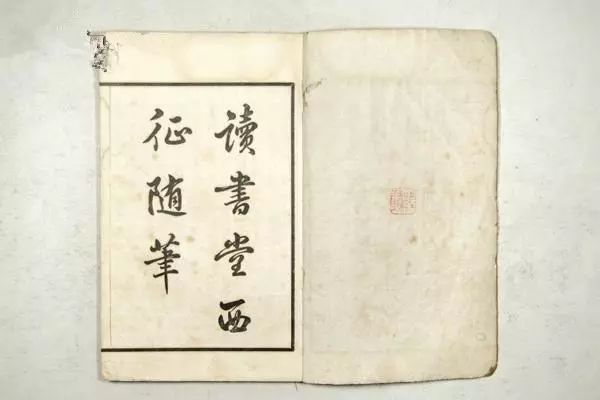 讀書堂西
征随筆